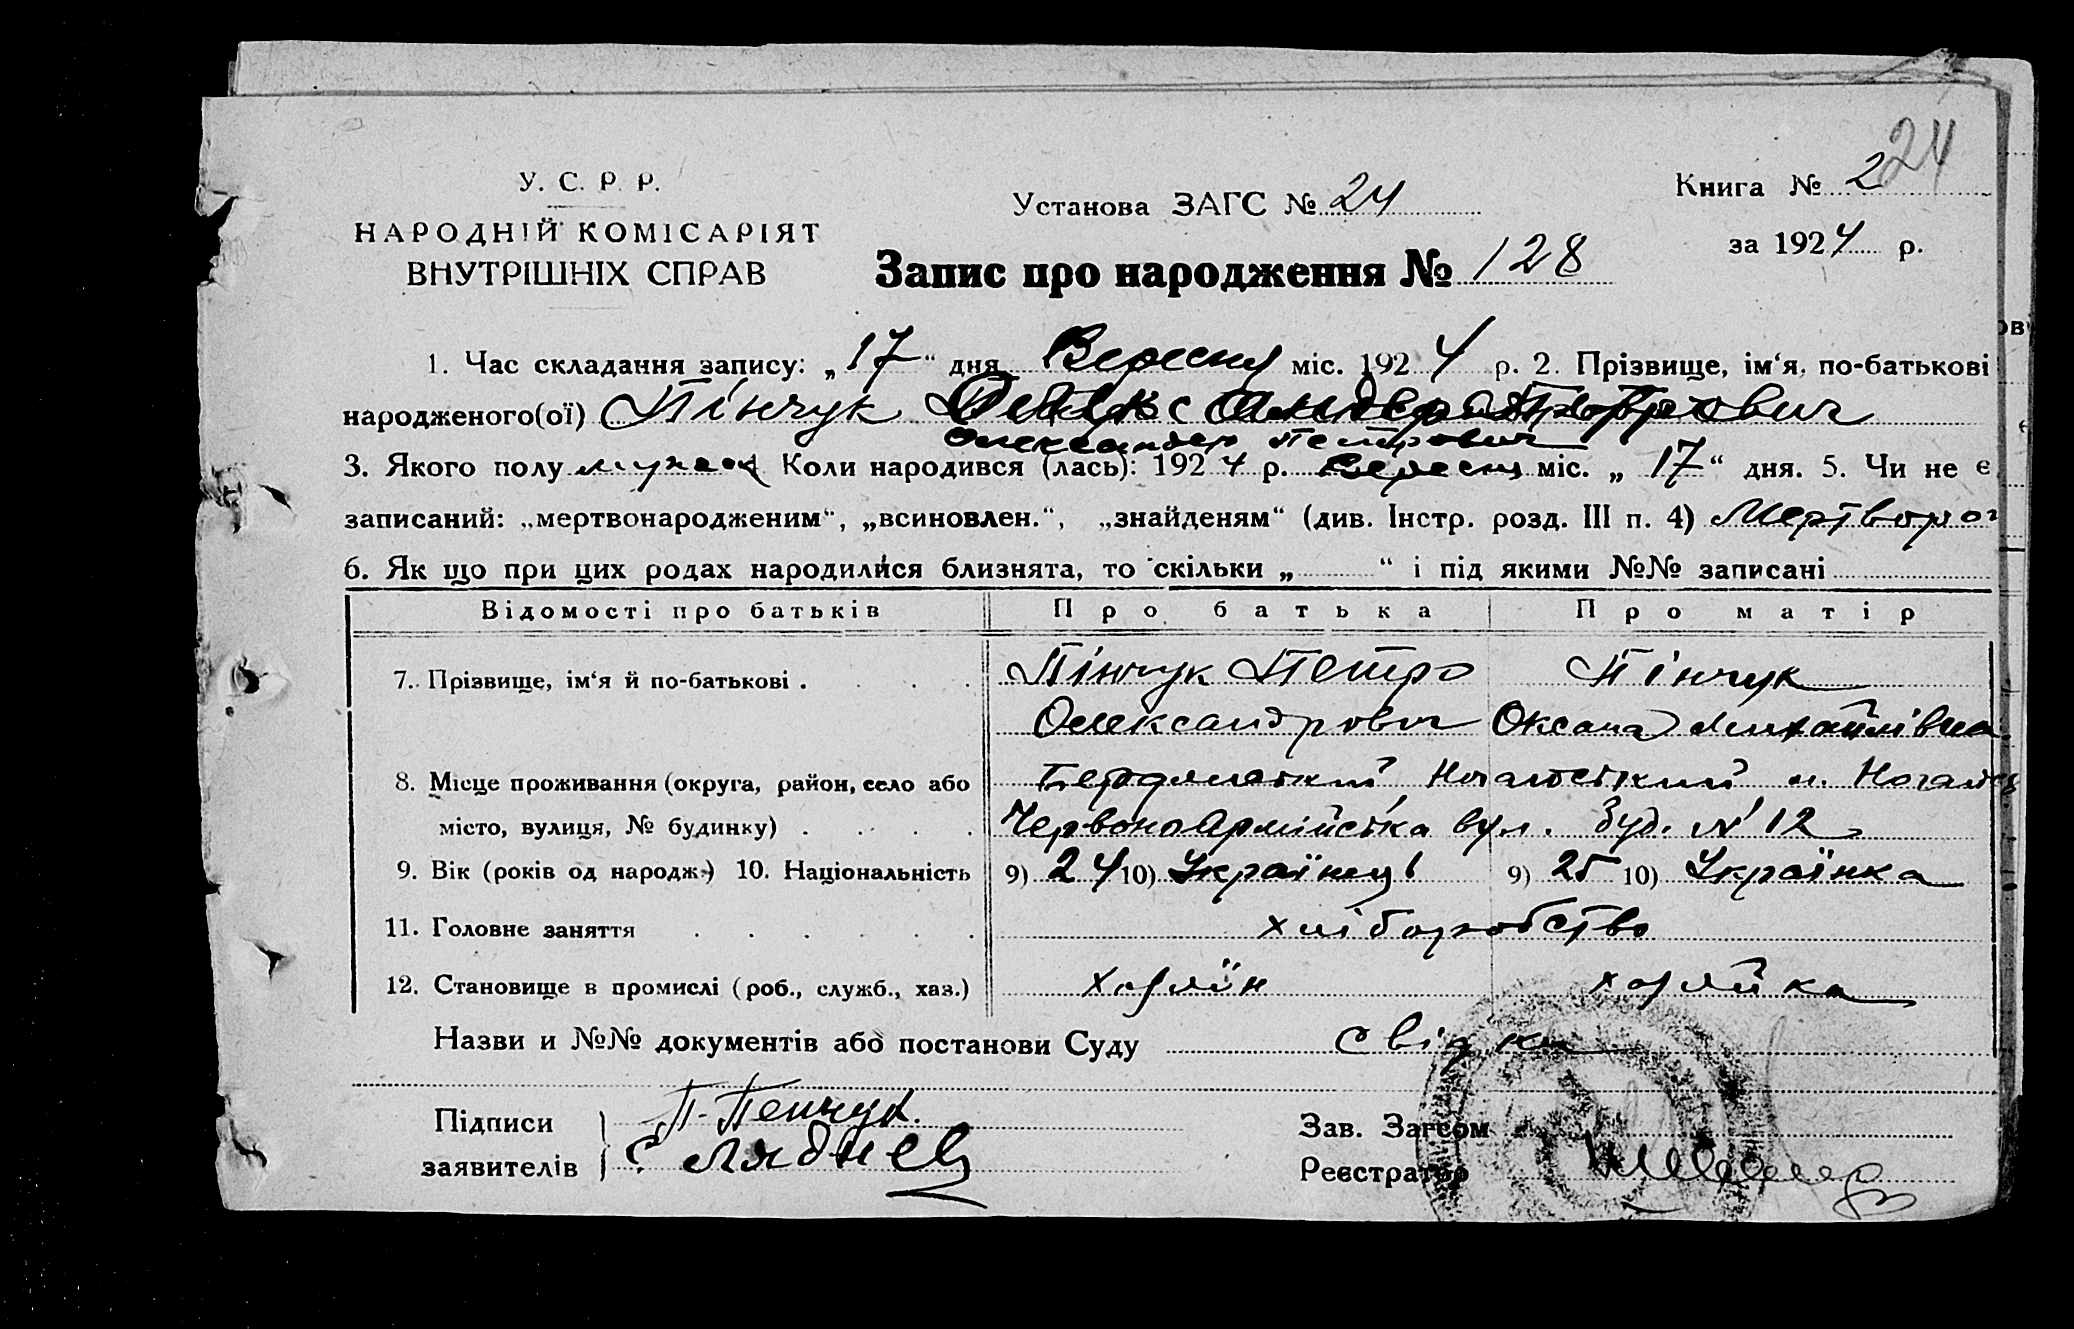 24
У. С. Р. Р.
НАРОДНІЙ КОМІСАРІЯТ
ВНУТРІШНІХ СПРАВ
Установа ЗАГС № 24
Книга № 2
за 1924 р.
Запис про народження № 128
1. Час складання запису: „17“ дня Вересня міс. 1924 р. 2. Прізвище, ім‘я, по-батькові
народженого(ої) Пінчук
Олександер Петрович
3. Якого полу Коли народився (лась): 1924 р. Вересня міс. „17“ дня. 5. Чи не є
записаний: „мертвонародженим“, „всиновлен.“, „знайденям“ (див. Інстр. розд. III п. 4)
6. Як що при цих родах народилися близнята, то скільки „ “ і під якими №№ записані
Відомості про батьків Про батька Про матір
7. Прізвище, ім‘я й по-батькові . Пінчук Петро Пінчук
Олександрович Оксана Михайлівна
8. Місце проживання (округа, район, село або Бердянський Ногайський м. Ногайск
місто, вулиця, № будинку) . Червоно Армійська вул. буд. № 12
9. Вік (років од народж.) 10. Національність 9) 24 10) Українець 9) 25 10) Українка
11. Головне заняття хліборобство
12. Становище в промислі (роб., служб., хаз.) хазяїн хазяйка
Назви и №№ документів або постанови Суду свідки
Підписи П. Пенчук.
заявителів
Зав. Загсом
Реєстратор